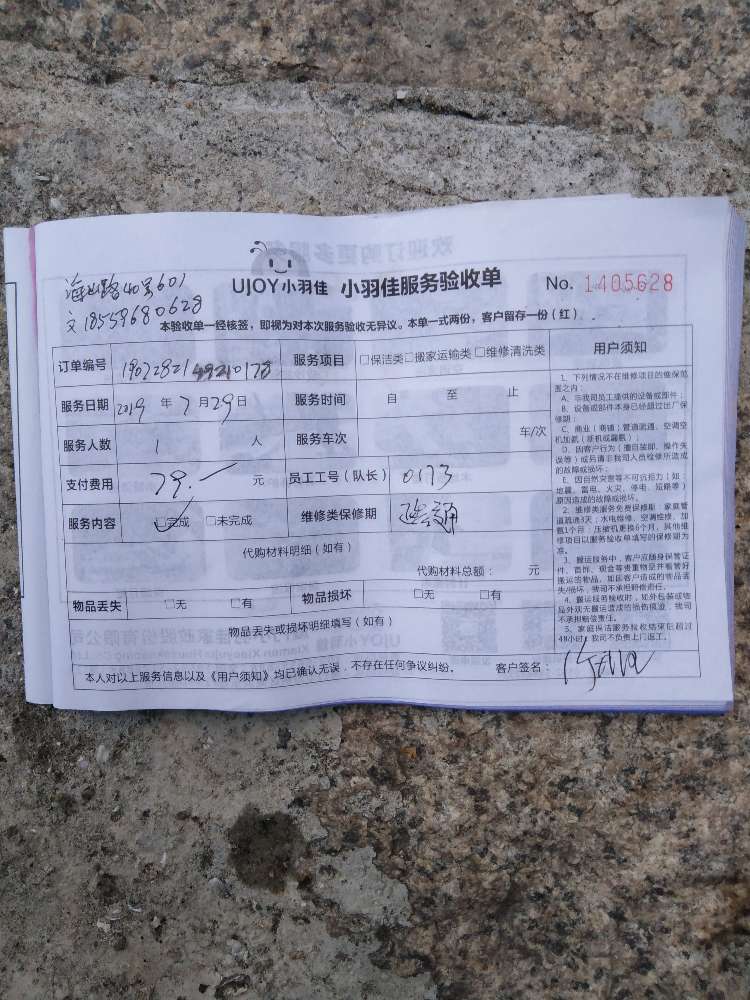 UJOY小羽佳 小羽佳服务验收单 No. 1405628
路40号601
18559680628
本验收单一经核签，即视为对本次服务验收无异议。本单一式两份，客户留存一份（红）.
订单编号 服务项目 □保洁类□搬家运输类□维修清洗类
服务日期 2019 年 7 月 29 日 服务时间 自 至 止
服务人数 1 人 服务车次 车/次
支付费用 79.- 元 员工工号（队长） 0173
服务内容 ☑完成 □未完成 维修类保修期
代购材料明细（如有）
代购材料总额： 元
物品丢失 □无 □有 物品损坏 □无 □有
物品丢失或损坏明细填写（如有）
本人对以上服务信息以及《用户须知》均已确认无误，不存在任何争议纠纷。 客户签名：
用户须知
1、下列情况不在维修项目的维保范
围之内：
A、非我司员工提供的设备或部件；
B、设备或部件本身已经超过出厂保
修期；
C、商业（商铺）管道疏通、空调空
机加氨（新机或漏氨）；
D、因客户行为（擅自装卸、操作失
误等）或另请非我司人员检修所造成
的故障或损坏；
E、因自然灾害等不可抗拒力（如：
地震、雷电、火灾、停电、短路等）
原因造成的故障或损坏。
2、维修类服务免费保修期：家庭管
道疏通3天；水电维修、空调维修、加
氨1个月；压缩机更换6个月，其他维
修项目以服务验收单填写的保修期为
准。
3、搬运服务中，客户应随身保管证
件、首饰、现金等贵重物品并看管好
搬运的物品，如因客户造成的物品丢
失/损坏，我司不承担赔偿责任。
4、搬运服务验收时，如外包装或物
品外观无搬运造成的损伤痕迹，我司
不承担赔偿责任。
5、家庭保洁服务验收结束后超过
48小时，我司不负责上门返工。